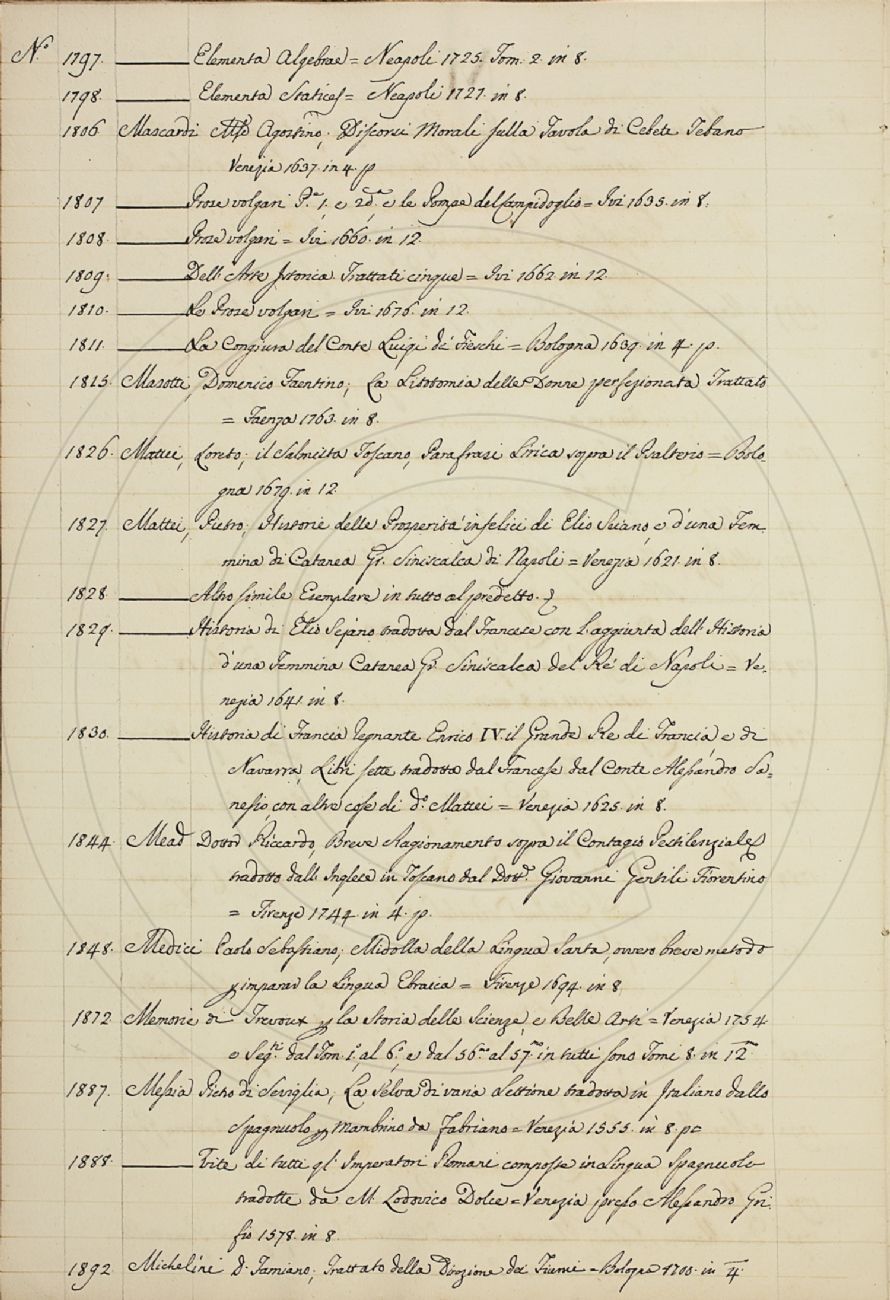 N.º 1797. ——— Elementa Algebrae = Neapoli 1725. Tom. 2. in 8.
1798. ——— Elementa Statices = Neapoli 1727. in 8.
1806 Mascardi Agostino; Discorsi Morali sulla Tavola di Cebete Tebano
Venezia 1637. in 4. p
1807 ——— Prose volgari P.e 1. e 2d.a e le Pompe del Campidoglio = Ivi 1635. in 8.
1808. ——— Prose volgari = Ivi 1660. in 12.
1809. ——— Dell'Arte Istorica Trattati cinque = Ivi 1662. in 12.
1810. ——— Le Prose volgari = Ivi 1676. in 12.
1811. ——— La Congiura del Conte Luigi de' Fieschi = Bologna 1639. in 4. p.
1815. Masotti, Domenico Faentino; La Litotomia delle Donne perfezionata Trattato
= Faenza 1763. in 8.
1826. Mattei, Loreto; il Salmista Toscano, Parafrasi Lirica sopra il Psalterio = Bolo-
gna 1679. in 12.
1827. Mattei, Pietro; Historie delle Prosperità infelici di Elio Seiano, e d'una Fem-
mina di Catanea Gr. Siniscalca di Napoli = Venezia 1621. in 8.
1828. ——— Altro simile Esemplare in tutto al predetto. }
1829. ——— Historia di Elio Sejano tradotta dal Francese con l'aggiunta dell'Historia
d'una Femmina Catanea Gr. Siniscalca del Re di Napoli = Ve-
nezia 1641. in 8.
1830. ——— Historia di Francia Regnante Enrico IV. il Grande Re di Francia e di
Navarra, Libri sette tradotta dal Francese dal Conte Alessandro Se-
nesio, con altre cose di d.º Mattei = Venezia 1625. in 8.
1844. Mead Dottor Riccardo, Breve Ragionamento sopra il Contagio Pestilenziale
tradotto dall'Inglese in Toscano dal Dott.r Giovanni Gentili Fiorentino
= Firenze 1744. in 4. p.
1848. Medici Paolo Sebastiano; Midolla della Lingua Santa, ovvero breve metodo
p imparar la Lingua Ebraica = Firenze 1694. in 8.
1872 Memorie di Trevoux p la Storia delle Scienze, e Belle Arti = Venezia 1754
e Seg.ti dal Tom. 1.º al 6.º, e dal 56.mo al 57.mo in tutti sono Tomi 8. in 12
1887. Messia Pietro di Seviglia; La Selva di varia Lettione tradotta in Italiano dallo
Spagnuolo p Mambrino da Fabriano = Venezia 1555. in 8. p
1888. ——— Vite di tutti gl'Imperatori Romani composte in Lingua Spagnuola
tradotte da M. Lodovico Dolce = Venezia presso Alessandro Gri-
fio 1578. in 8.
1892. Michelini D. Famiano; Trattato della Direzione de' Fiumi = Bologna 1700. in 4